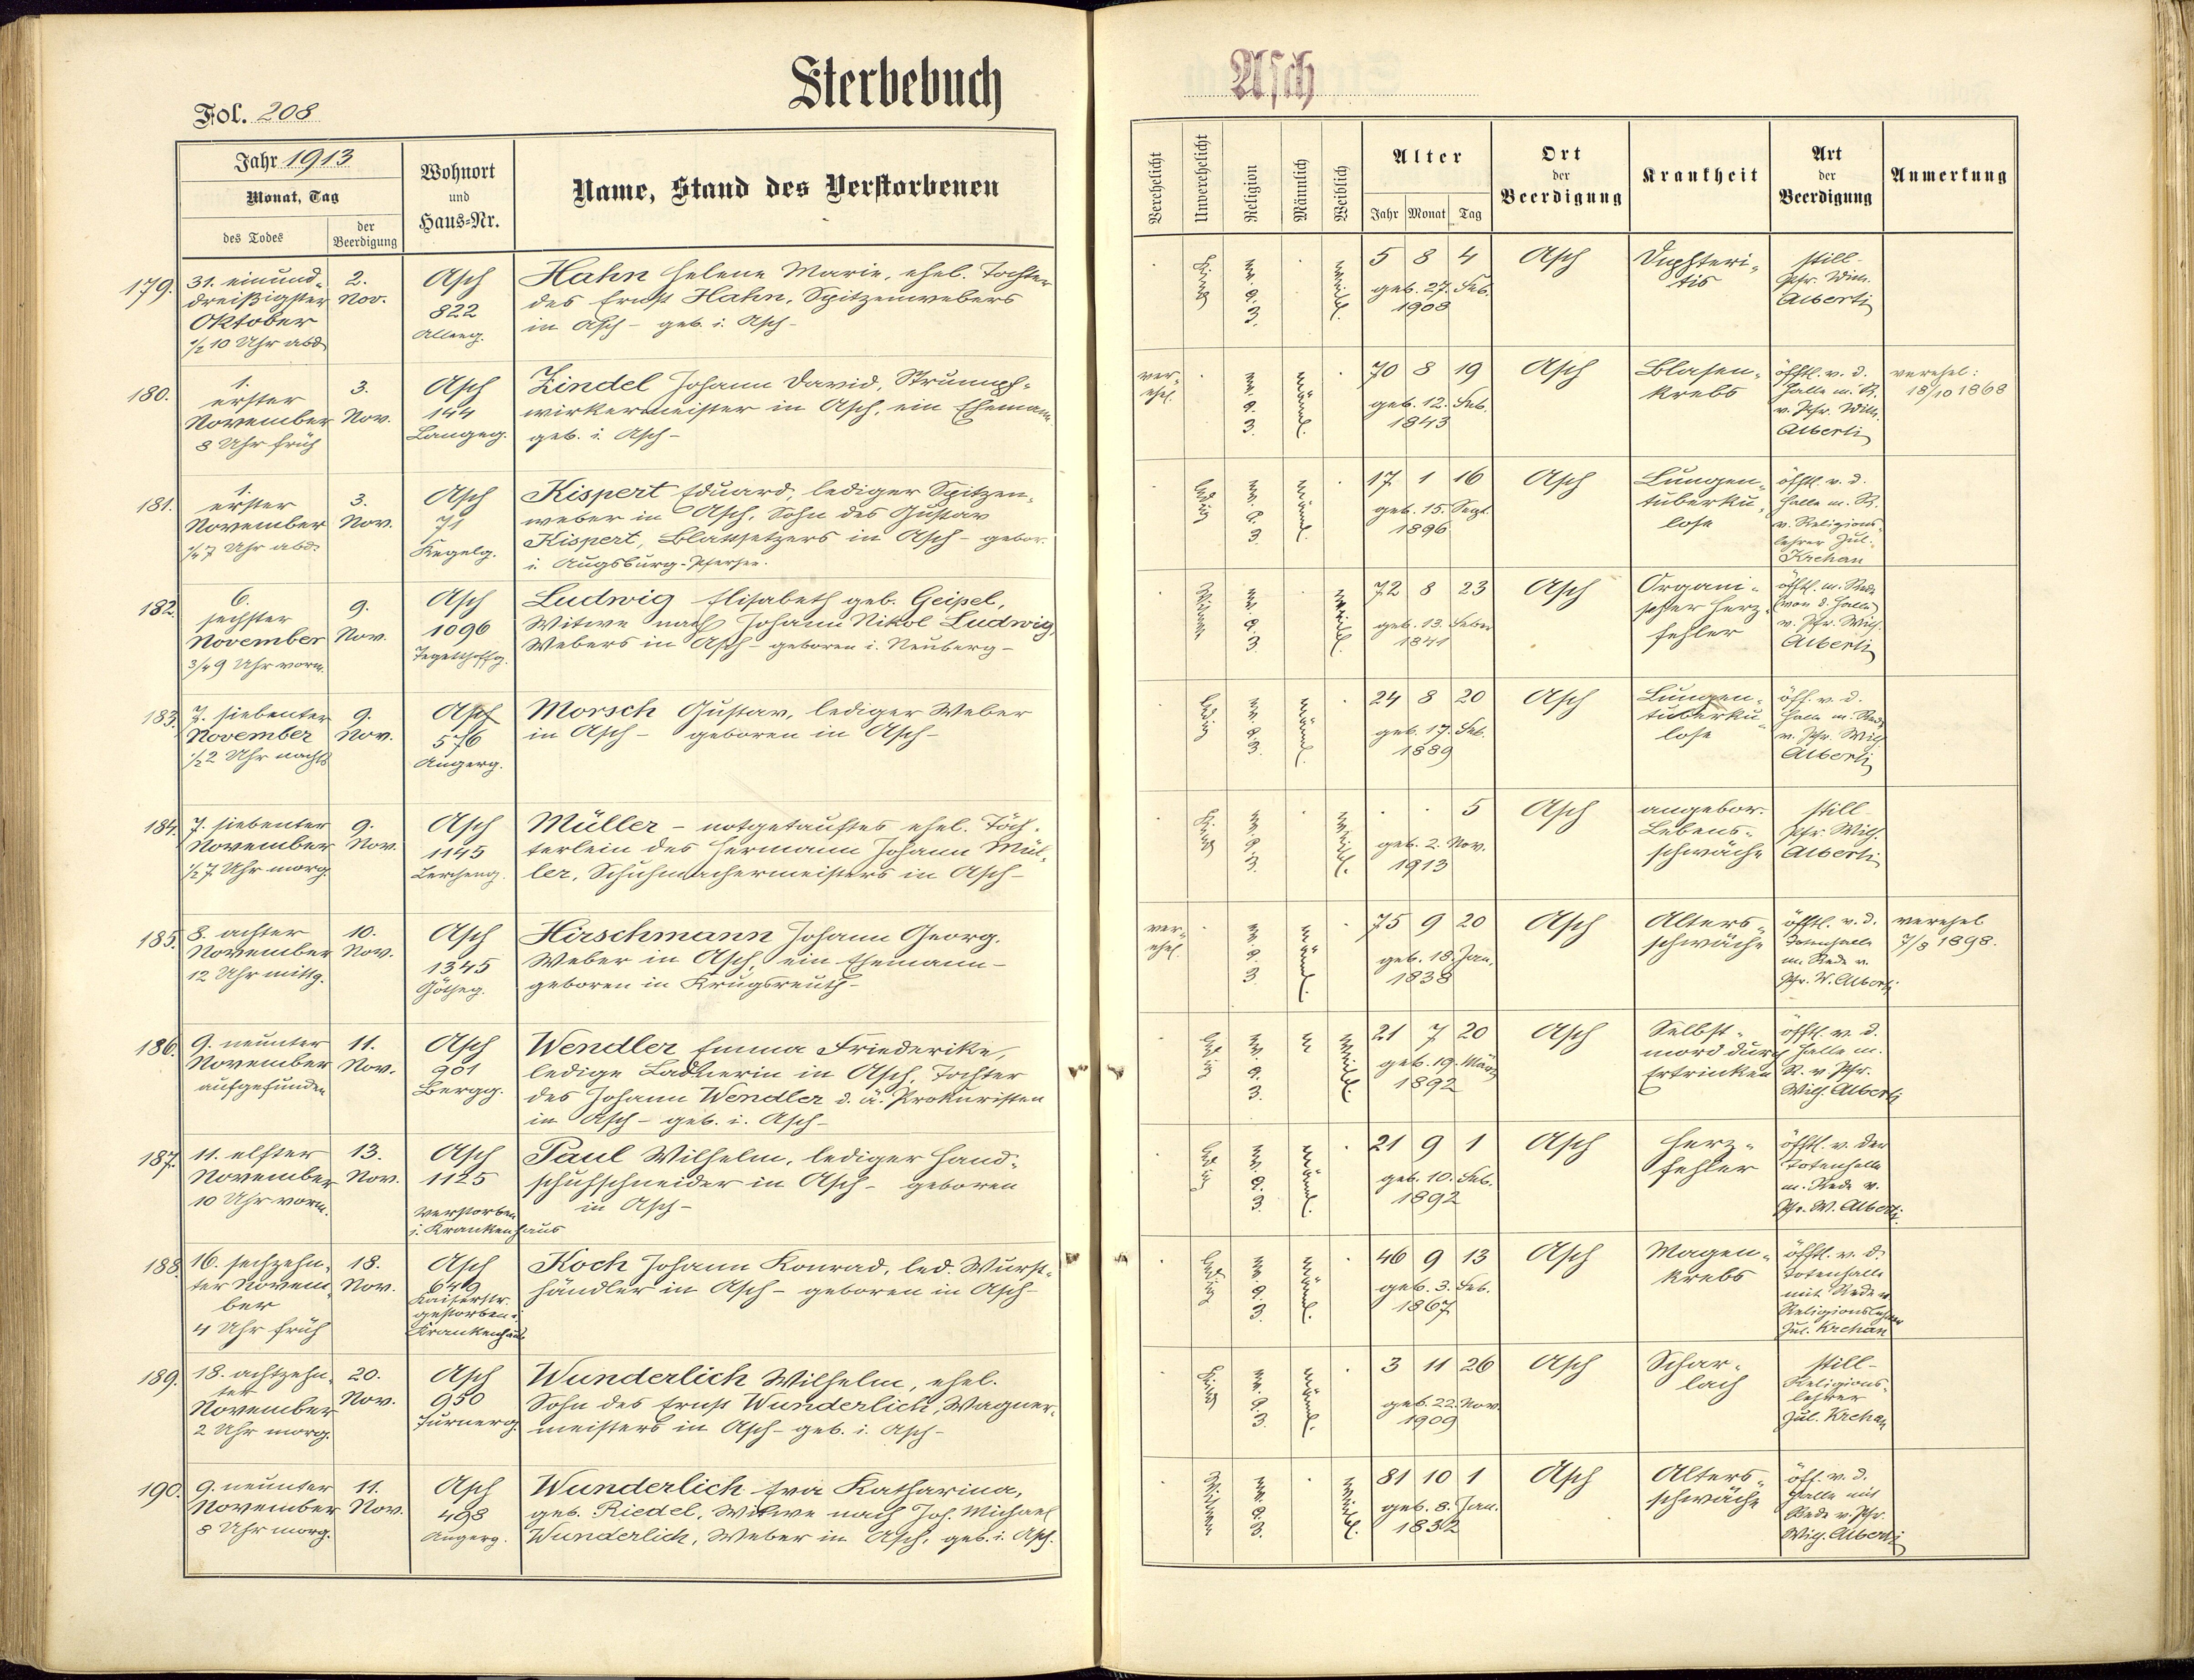 Sterbebuch
Asch
Fol. 208
Jahr 1913
Monat, Tag
des Todes
der Beerdigung
Wohnort
und
Haus-Nr.
Name, Stand des Verstorbenen
Verehelicht
Unverehelicht
Religion
Männlich
Weiblich
Alter
Jahr Monat Tag
Ort
der
Beerdigung
Krankheit
Art
der
Beerdigung
Anmerkung
179.
31. einund-
dreißigster
Oktober
1/2 10 Uhr abd
2.
Nov.
Asch
822
Alleeg.
Hahn Helene Marie, ehel. Tochter
des Ernst Hahn, Spitzenwebers
in Asch - geb. i. Asch -
Kind
ev. A. B.
weibl.
5 8 4
geb. 27. Feb.
1908
Asch
Diphteri-
tis
still -
Pfr. Wilh.
Alberti
180.
1.
erster
November
8 Uhr früh
3.
Nov.
Asch
144
Langeg.
Zindel Johann David, Strumpf-
wirkermeister in Asch, ein Ehemann
geb. i. Asch -
ver-
ehel.
ev. A. B.
männl.
70 8 19
geb. 12. Feb.
1843
Asch
Blasen-
krebs
öfftl. v. d.
Halle m. R.
v. Pfr. Wilh.
Alberti
verehel:
18/10 1868
181.
1.
erster
November
1/4 7 Uhr abds
3.
Nov.
Asch
71
Kegelg.
Kispert Eduard, lediger Spitzen-
weber in Asch, Sohn des Gustav
Kispert, Blattsetzers in Asch - gebor.
i. Augsburg-Pfersee.
ledig
ev. A. B.
männl.
17 1 16
geb. 15. Sept.
1896
Asch
Lungen-
tuberku-
lose
öfftl. v. d.
Halle m. R.
v. Religions-
lehrer Jul.
Krehan
182.
6.
sechster
November
3/4 9 Uhr vorm.
9.
Nov.
Asch
1096
Tegetthoffg.
Ludwig Elisabeth geb. Geipel,
Witwe nach Johann Nikol Ludwig,
Webers in Asch - geboren i. Neuberg -
Witwe
ev. A. B.
weibl.
72 8 23
geb. 13. Feber
1841
Asch
Organi-
scher Herz-
fehler
öfftl. m. Rede
(von d. Halle)
v. Pfr. Wilh.
Alberti
183.
7. siebenter
November
1/2 2 Uhr nachts
9.
Nov.
Asch
576
Angerg.
Morsch Gustav, lediger Weber
in Asch - geboren in Asch -
ledig
ev. A. B.
männl.
24 8 20
geb. 17. Feb.
1889
Asch
Lungen-
tuberku-
lose
öff. v. d.
Halle m. Rede
v. Pfr. Wilh
Alberti
184.
7. siebenter
November
1/2 7 Uhr morg.
9.
Nov.
Asch
1145
Lercheng.
Müller - notgetauftes ehel. Töch-
terlein des Hermann Johann Mül-
ler, Schuhmachermeisters in Asch -
Kind
ev. A. B.
weibl.
5
geb. 2. Nov.
1913
Asch
angebor.
Lebens-
schwäche
still
Pfr. Wilh.
Alberti
185.
8. achter
November
12 Uhr mittg.
10.
Nov.
Asch
1345
Götheg.
Hirschmann Johann Georg.
Weber in Asch, ein Ehemann -
geboren in Krugsreuth -
ver-
ehel.
ev. A. B.
männl.
75 9 20
geb. 18. Jan.
1838
Asch
Alters-
schwäche
öfftl. v. d.
Totenhalle
m. Rede v.
Pfr. W. Alberti
verehel
7/8 1898.
186.
9. neunter
November
aufgefunden
11.
Nov.
Asch
901
Bergg.
Wendler Emma Friederike,
ledige Ladnerin in Asch, Tochter
des Johann Wendler d. ä. Prokuristen
in Asch - geb. i. Asch -
ledig
ev. A. B.
weibl.
21 7 20
geb. 19. März
1892
Asch
Selbst-
mord durch
Ertrinken
öfftl. v. d.
Halle m.
R. v Pfr.
Wilh. Alberti
187.
11. elfter
November
10 Uhr vorm.
13.
Nov.
Asch
1125
verstorben
i. Krankenhaus
Paul Wilhelm, lediger Hand-
schuhschneider in Asch - geboren
in Asch -
ledig
ev. A. B.
männl.
21 9 1
geb. 10. Feb.
1892
Asch
Herz-
fehler
öfftl. v. der
Totenhalle
m. Rede v.
Pfr. W. Alberti
188.
16. sechzehn-
ter Novem-
ber
4 Uhr früh
18.
Nov.
Asch
649
Kaiserstr.
gestorben i.
Krankenhaus
Koch Johann Konrad, led. Wurst-
händler in Asch - geboren in Asch -
ledig
ev. A. B.
männl.
46 9 13
geb. 3. Feb.
1867
Asch
Magen-
krebs
öfftl. v. d.
Totenhalle
mit Rede v
Religionslehrer
Jul. Krehan
189.
18. achtzehn-
ter
November
2 Uhr morg.
20.
Nov.
Asch
950
Turnerg.
Wunderlich Wilhelm, ehel.
Sohn des Ernst Wunderlich, Wagner-
meisters in Asch - geb. i. Asch -
Kind
ev. A. B.
männl.
3 11 26
geb. 22. Nov.
1909
Asch
Schar-
lach
still -
Religions-
lehrer
Jul. Krehan
190.
9. neunter
November
8 Uhr morg.
11.
Nov.
Asch
498
Angerg.
Wunderlich Eva Katharina,
geb. Riedel, Witwe nach Joh. Michael
Wunderlich, Weber in Asch, geb. i. Asch.
Witwe
ev. A. B.
weibl.
81 10 1
geb. 8. Jan.
1832
Asch
Alters-
schwäche
öff. v. d.
Halle mit
Rede v. Pfr.
Wilh. Alberti